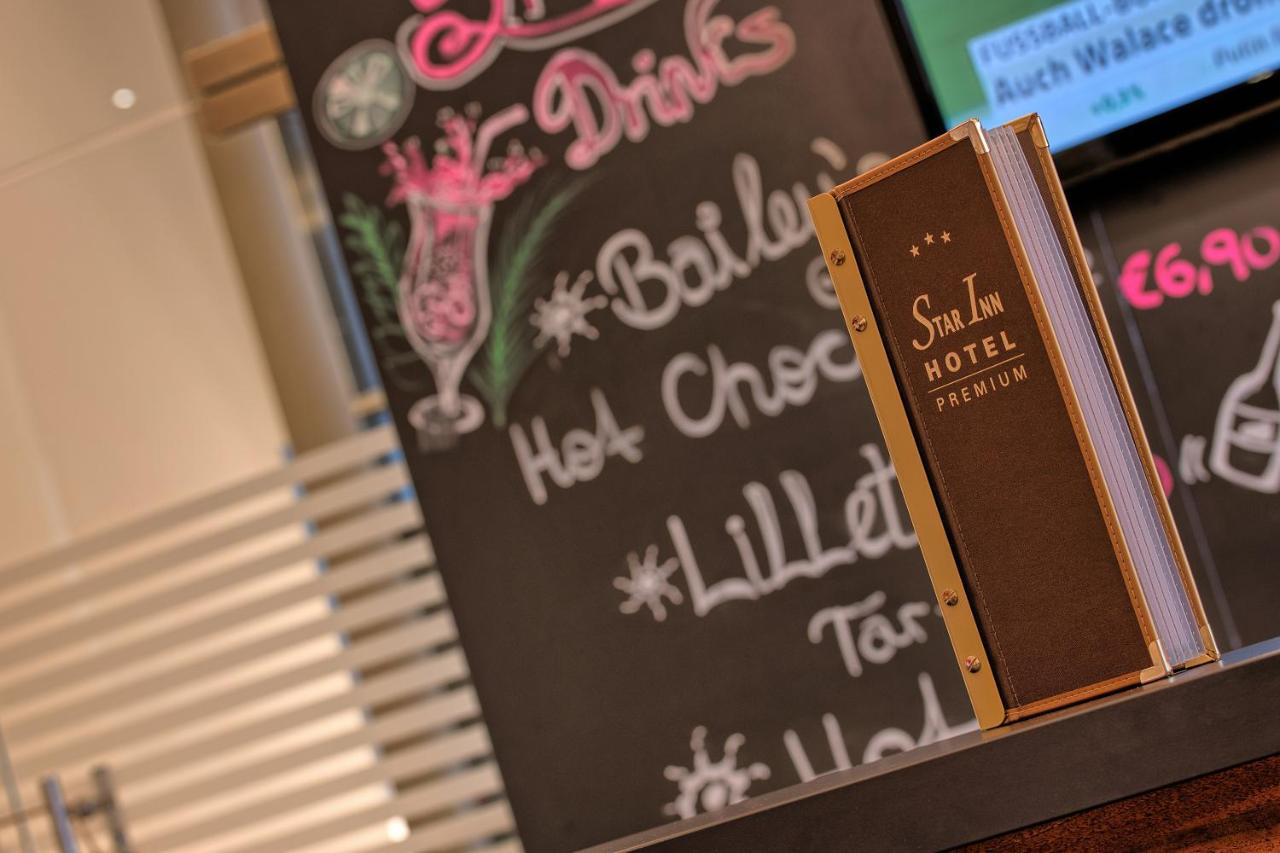 Drinks
Bailey's
Hot Choc
LiLLet
Tar
Hot
★★★
STAR INN
HOTEL
PREMIUM
FUSSBALL-BU
Auch Walace droh
Putin
+0,8%
€6,90